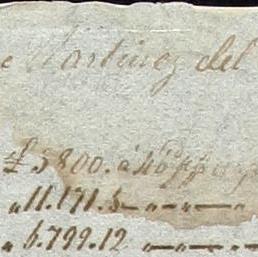 e Martinez del
£ 5800. á 40
" 11.171.5 — " — " —
" 6.799.12 — " — " —